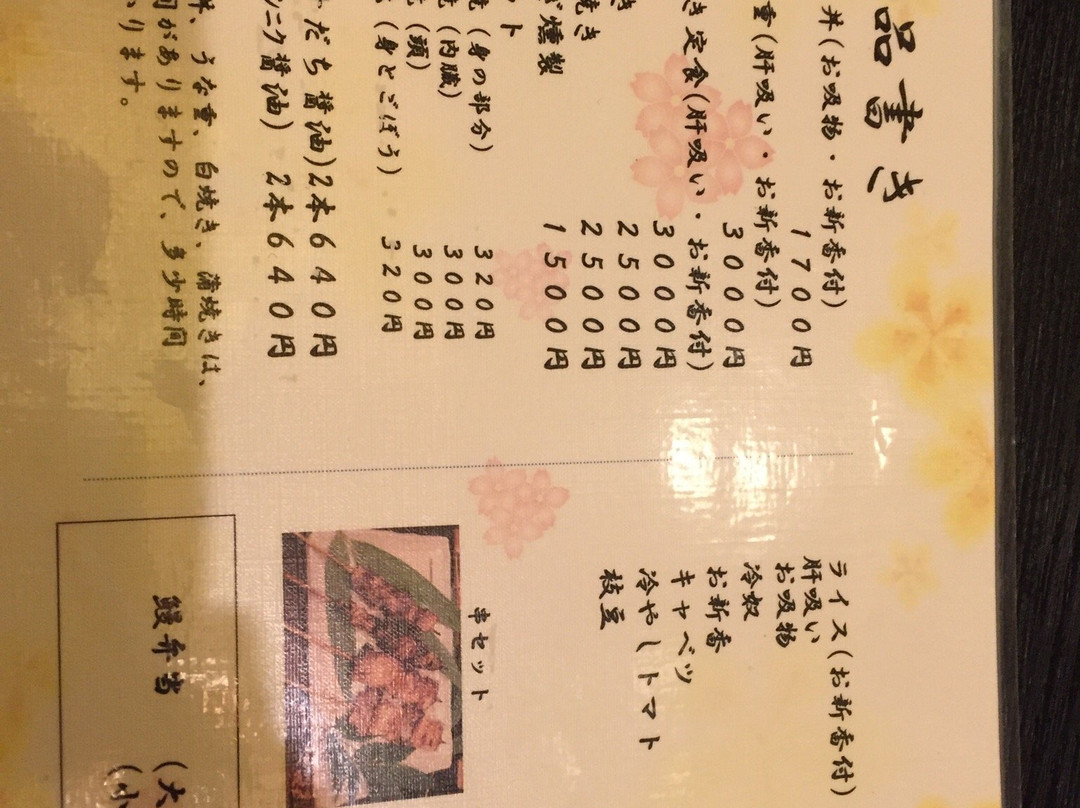 品書き
丼(お吸物・お新香付)
1700円
重(肝吸い・お新香付)
3000円
き定食(肝吸い・お新香付)
3000円
き 2500円
焼き 2500円
燻製 1500円
ット
(身の部分) 320円
(内臓) 300円
(頭) 300円
(身とごぼう) 320円
だち醤油)2本640円
ニク醤油) 2本640円
うな重、白焼き、蒲焼きは、
がありますので、多少時間
ります。
ライス(お新香付)
肝吸い
お吸物
冷奴
お新香
キャベツ
冷やしトマト
枝豆
串セット
鰻弁当 (大
(小